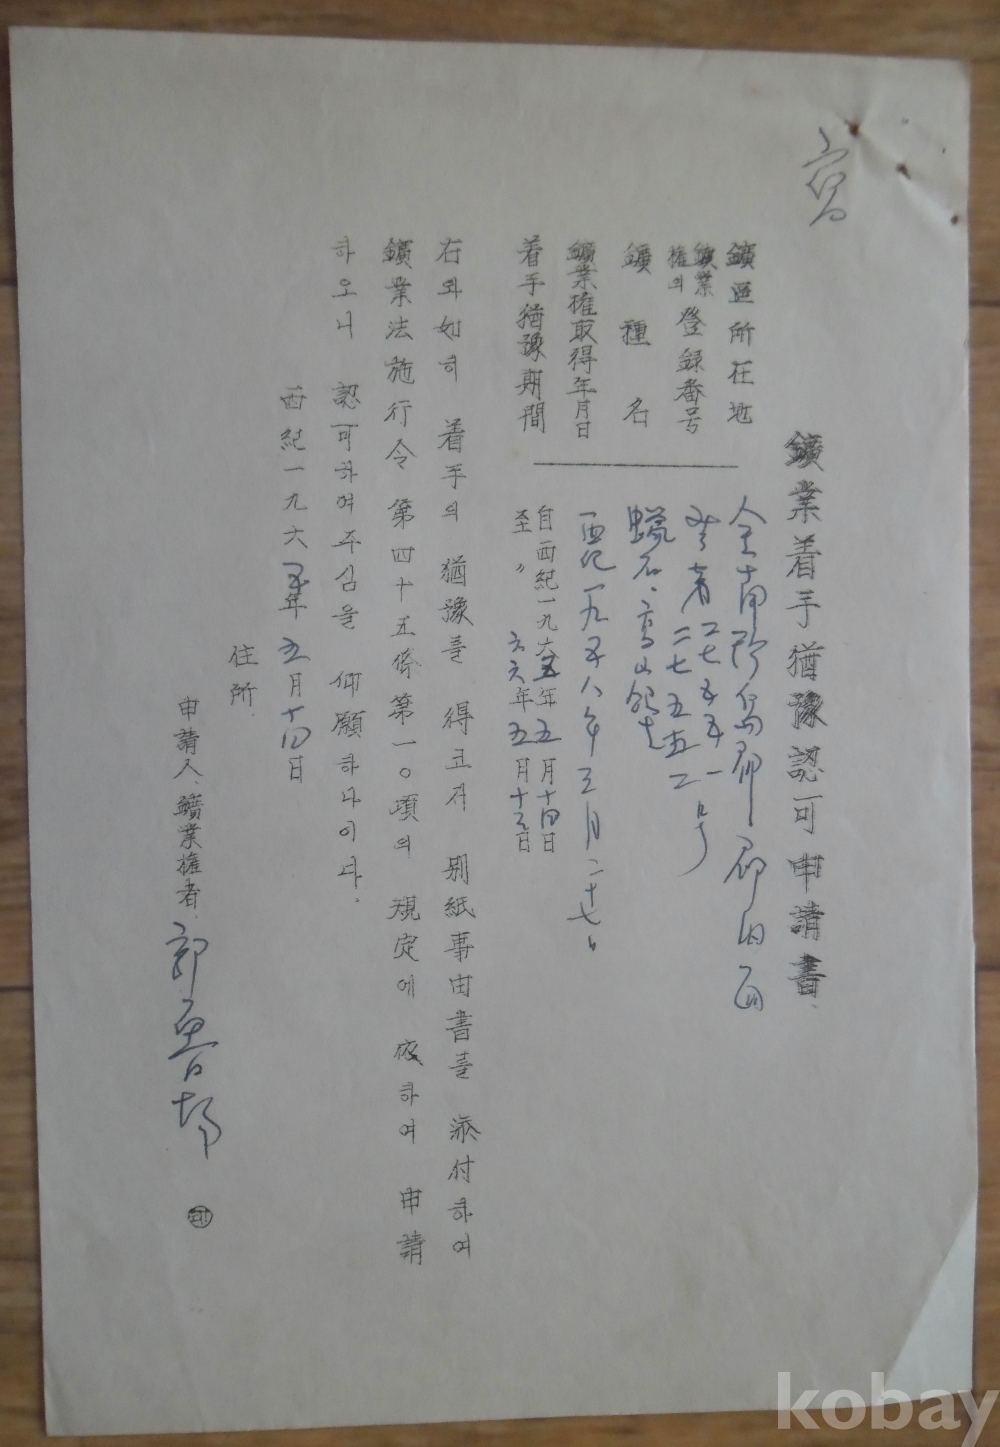 寫
鑛業着手猶豫認可申請書
鑛區所在地 全南珍島郡郡內面
鑛業權의 登録番号 二七五五一号
二七五五二
鑛種名 蠟石、高嶺土
鑛業權取得年月日 西紀一九五八年三月二十七日
着手猶豫期間 自西紀一九六五年五月十四日
至〃 六六年五月十三日
右와如히 着手의 猶豫를 得코저 别紙事由書를 添付하여
鑛業法施行令 第四十五條第一〇項의 規定에 依하여 申請
하오니 認可하여주심을 仰願하나이다.
西紀一九六五年五月十四日
住所
申請人、鑛業權者、郭
㊞
kobay